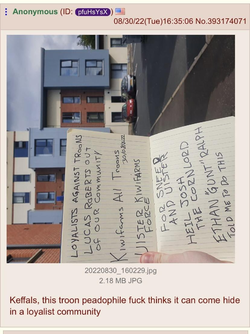 Anonymous (ID: pfuHsYsX)
08/30/22(Tue)16:35:06 No.393174071
LOYALISTS AGAINST TROONS
LUCAS ROBERTS OUT
OF OUR COMMUNITY
Kiwifarms All
ULSTER KIWIFARMS
FORCE
FOR SNEED
AND ULSTER
HEIL JOSH
THE CORNLORD
ETHAN "GUNT" RALPH
TOLD ME TO DO THIS
20220830_160229.jpg
2.18 MB JPG
Keffals, this troon peadophile fuck thinks it can come hide
in a loyalist community